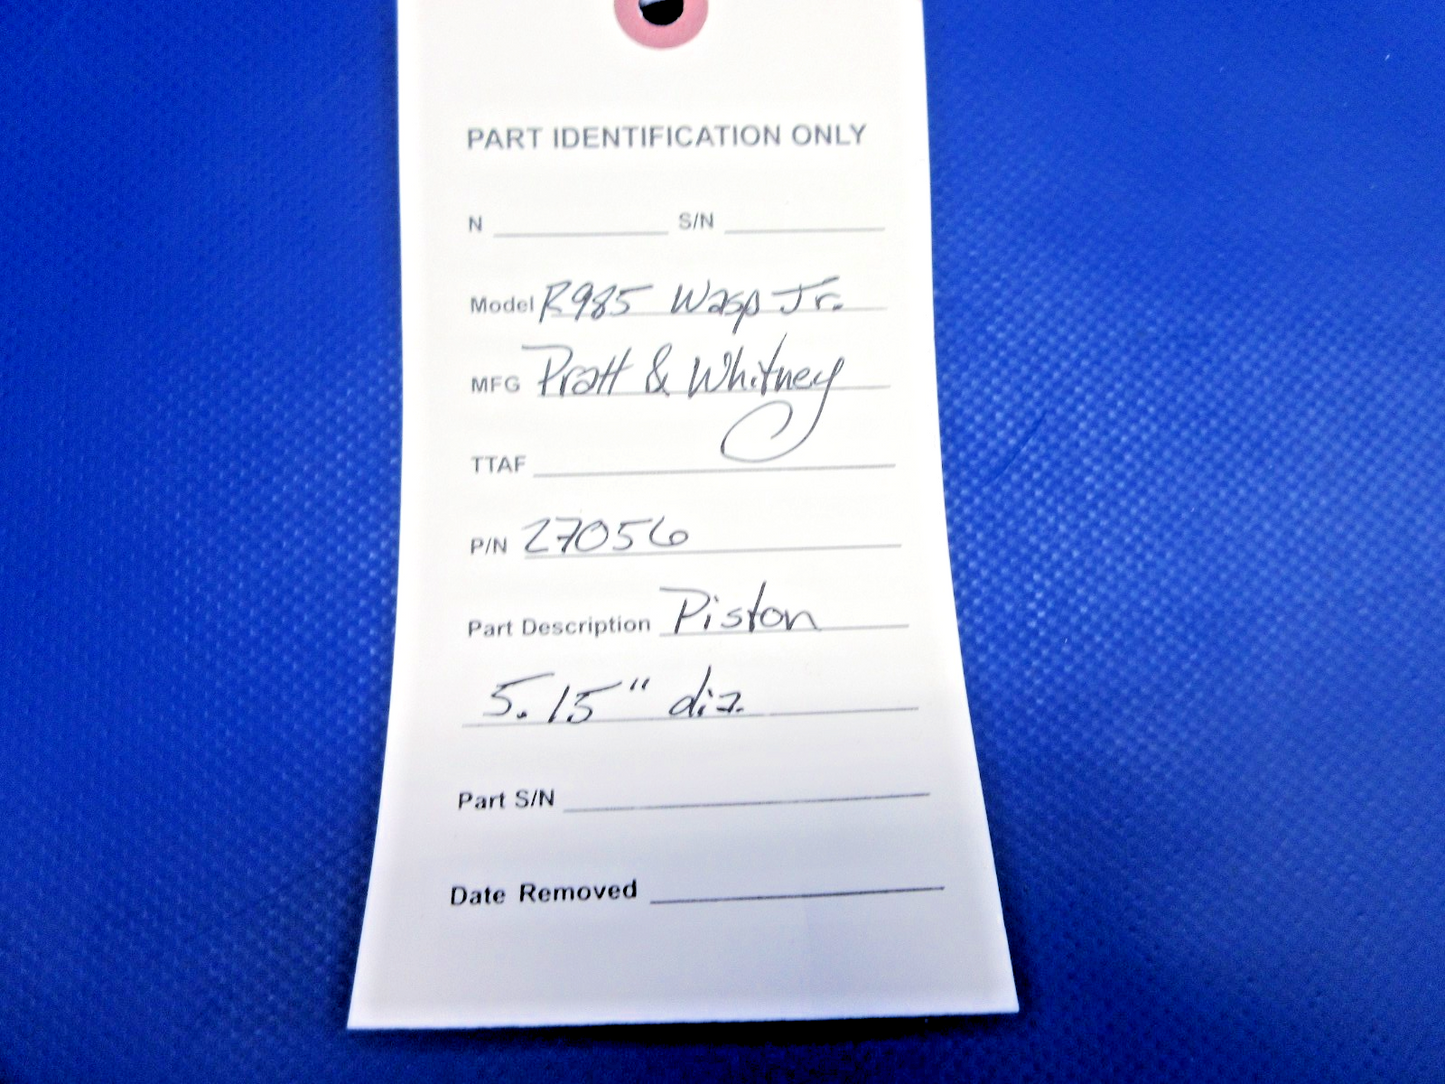 PART IDENTIFICATION ONLY
N S/N
Model R985 Wasp Jr.
MFG Pratt & Whitney
TTAF
P/N 27056
Part Description Piston
5.15" dia.
Part S/N
Date Removed